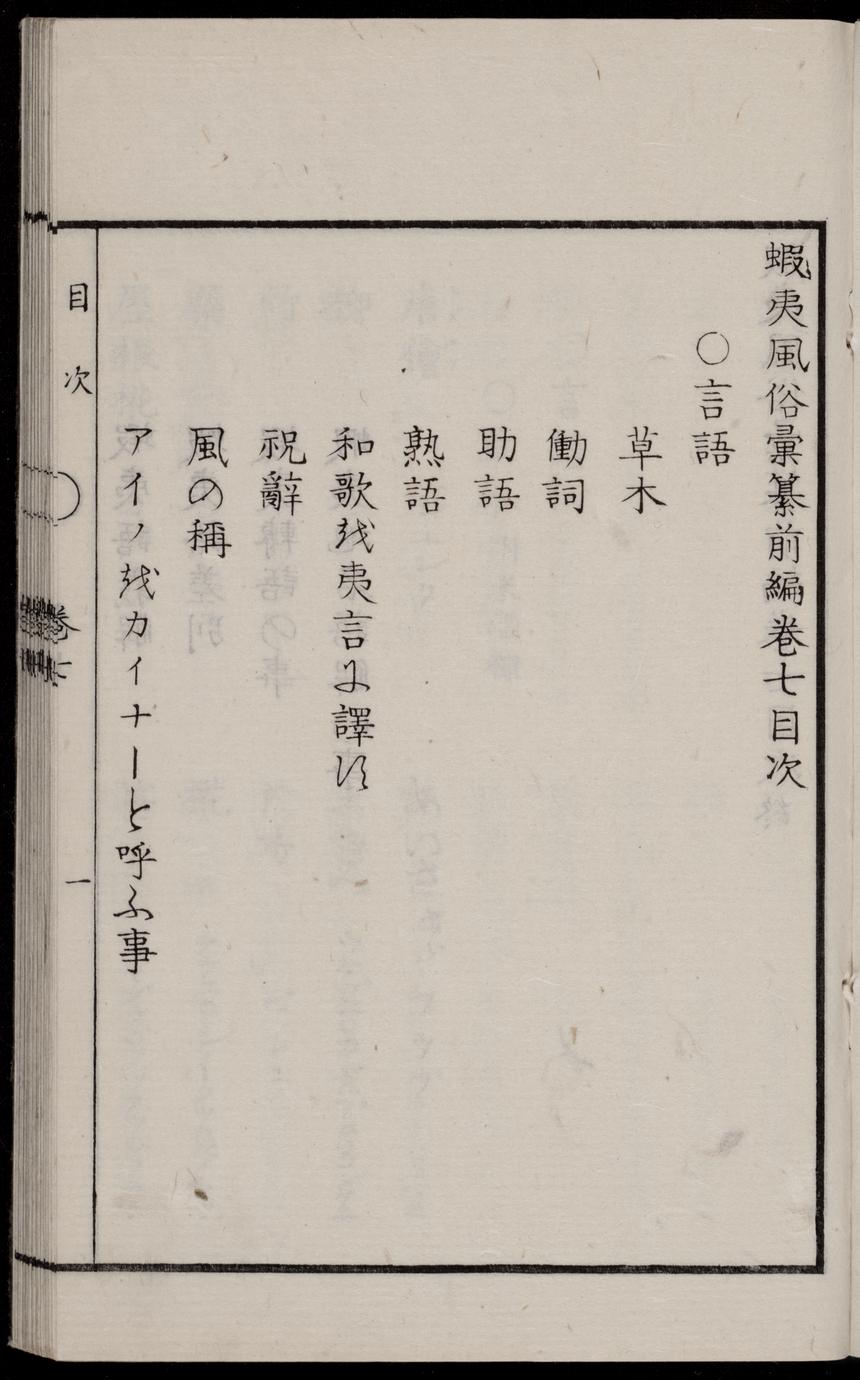 蝦夷風俗彙纂前編巻七目次
○言語
草木
働詞
助語
熟語
和歌越夷言尓譯須
祝辭
風の稱
アイノ越カイナーと呼ふ事
目次
一